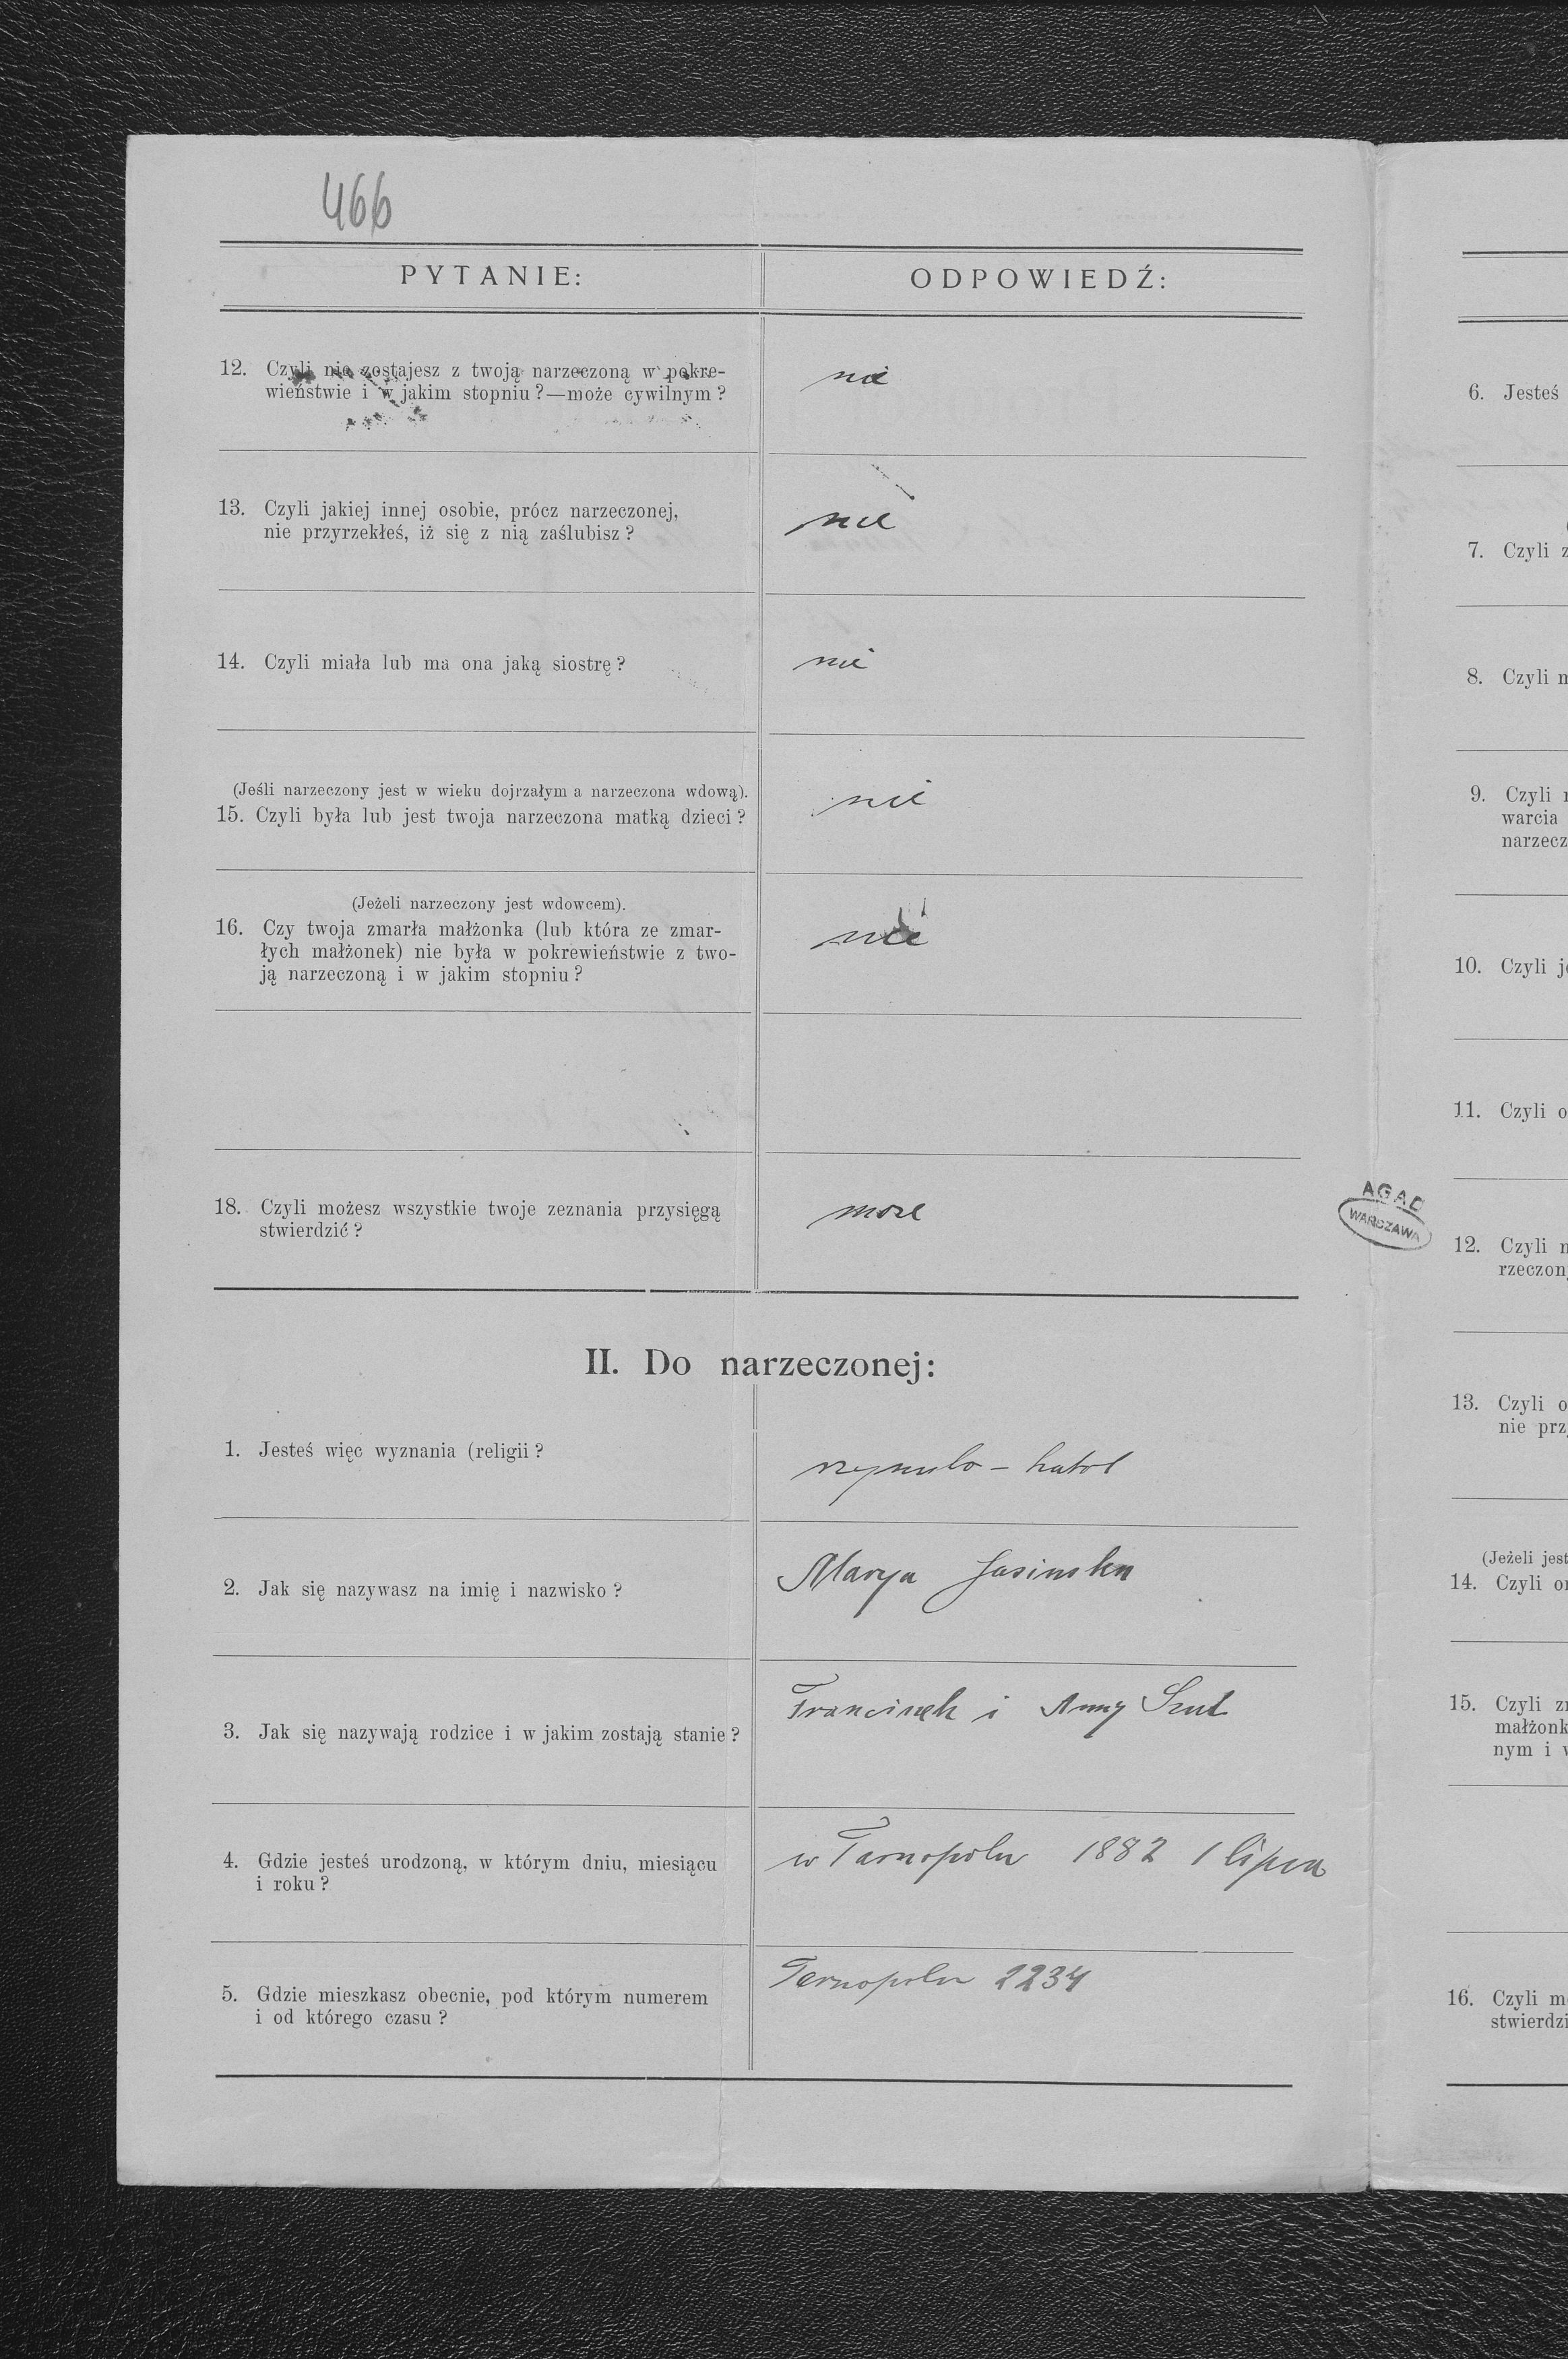 466
PYTANIE:
ODPOWIEDŹ:
12. Czyli nie zostajesz z twoją narzeczoną w pokre-
wieństwie i w jakim stopniu?—może cywilnym?
nie
13. Czyli jakiej innej osobie, prócz narzeczonej,
nie przyrzekłeś, iż się z nią zaślubisz?
nie
14. Czyli miała lub ma ona jaką siostrę?
nie
(Jeśli narzeczony jest w wieku dojrzałym a narzeczona wdową).
15. Czyli była lub jest twoja narzeczona matką dzieci?
nie
(Jeżeli narzeczony jest wdowcem).
16. Czy twoja zmarła małżonka (lub która ze zmar-
łych małżonek) nie była w pokrewieństwie z two-
ją narzeczoną i w jakim stopniu?
nie
18. Czyli możesz wszystkie twoje zeznania przysięgą
stwierdzić?
moze
II. Do narzeczonej:
1. Jesteś więc wyznania (religii?
rzymsko - katol
2. Jak się nazywasz na imię i nazwisko?
Marya Jasinska
3. Jak się nazywają rodzice i w jakim zostają stanie?
Franciszek i Anny
4. Gdzie jesteś urodzoną, w którym dniu, miesiącu
i roku?
w Tarnopolu 1882 1 lipca
5. Gdzie mieszkasz obecnie, pod którym numerem
i od którego czasu?
Tarnopolu 2234
AGAD
WARSZAWA
6. Jesteś
7. Czyli z
8. Czyli
9. Czyli
warcia
narzecz
10. Czyli
11. Czyli o
12. Czyli
rzeczon
13. Czyli o
nie prz
(Jeżeli jest
14. Czyli
15. Czyli
małżonk
nym i
16. Czyli m
stwierdzi